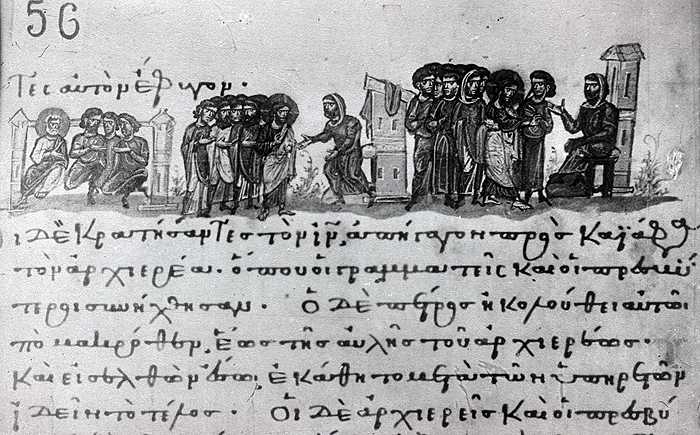 56
τες αὐτὸν ἔφυγον.
οἱ δὲ κρατήσαντες τὸν ἰν, ἀπήγαγον πρὸς καϊάφαν
τὸν ἀρχιερέα. ὅπου οἱ γραμματεῖς καὶ οἱ πρεσβύ
τεροι συνήχθησαν. ὁ δὲ πέτρος ἠκολούθει αὐτῶ ἀ
πὸ μακρόθεν, ἕως τῆς αὐλῆς τοῦ ἀρχιερέως.
καὶ εἰσελθὼν ἔσω, ἐκάθητο μετὰ τῶν ὑπηρετῶν
ἰδεῖν τὸ τέλος. οἱ δὲ ἀρχιερεῖς καὶ οἱ πρεσβύ